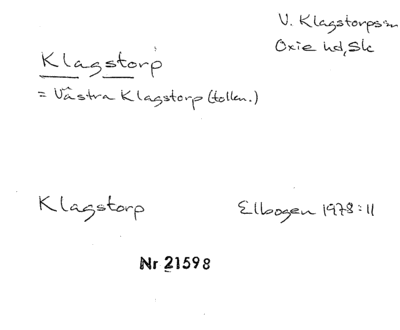 V. Klagstorps sn
Oxie hd, Sk
Klagstorp
= Västra Klagstorp (tolkn.)
Klagstorp
Elbogen 1978:11
Nr 21598